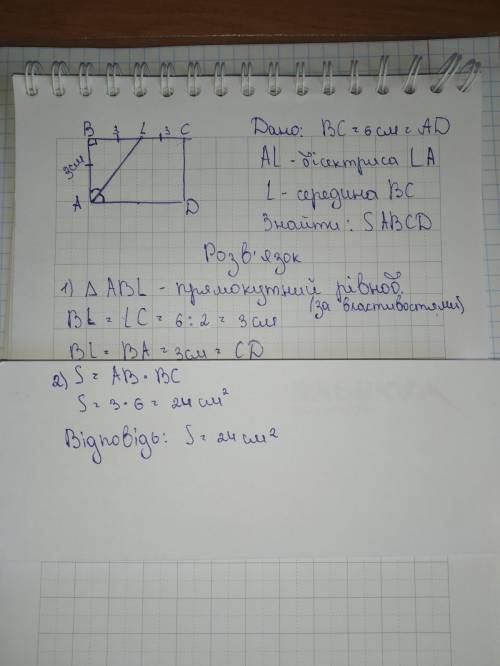 B 3 L 3 C
3см
A D
Дано: BC = 6 см = AD
AL - бісектриса ∠A
L - середина BC
Знайти: S ABCD
Розв'язок
1) Δ ABL - прямокутний рівноб.
(за властивостями)
BL = LC = 6 : 2 = 3 см
BL = BA = 3 см = CD
2) S = AB · BC
S = 3 · 6 = 24 см²
Відповідь: S = 24 см²